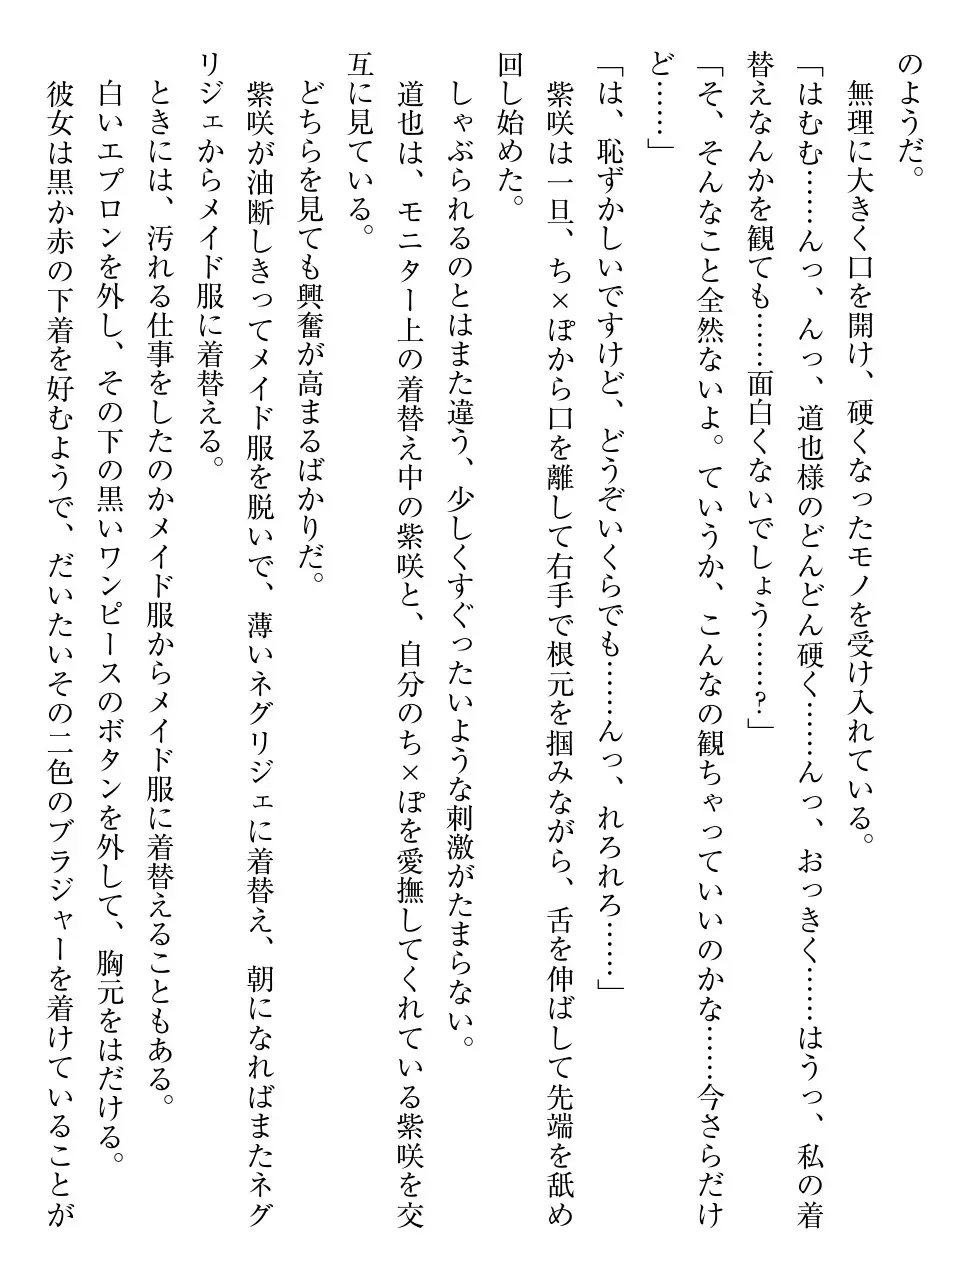 のようだ。
　無理に大きく口を開け、硬くなったモノを受け入れている。
「はむむ……んっ、んっ、道也様のどんどん硬く……んっ、おっきく……はうっ、私の着
替えなんかを観ても……面白くないでしょう……？」
「そ、そんなこと全然ないよ。ていうか、こんなの観ちゃっていいのかな……今さらだけ
ど……」
「は、恥ずかしいですけど、どうぞいくらでも……んっ、れろれろ……」
　紫咲は一旦、ち×ぽから口を離して右手で根元を掴みながら、舌を伸ばして先端を舐め
回し始めた。
　しゃぶられるのとはまた違う、少しくすぐったいような刺激がたまらない。
　道也は、モニター上の着替え中の紫咲と、自分のち×ぽを愛撫してくれている紫咲を交
互に見ている。
　どちらを見ても興奮が高まるばかりだ。
　紫咲が油断しきってメイド服を脱いで、薄いネグリジェに着替え、朝になればまたネグ
リジェからメイド服に着替える。
　ときには、汚れる仕事をしたのかメイド服からメイド服に着替えることもある。
　白いエプロンを外し、その下の黒いワンピースのボタンを外して、胸元をはだける。
　彼女は黒か赤の下着を好むようで、だいたいその二色のブラジャーを着けていることが